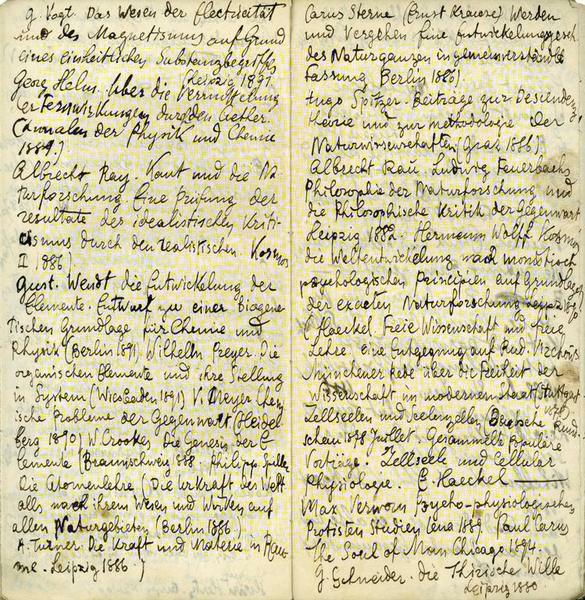 g. Vogt. Das Wesen der Electricität
und des Magnetismus auf Grund
eines einheitlichen Substanzbegriffes
(Leipzig 1891.
Georg Helm. Uber die Vermittelung
der Fernwirkungen durch den Aether.
(Annalen der Physik und Chemie
1881.)
Albrecht Ray. Kant und die Na-
turforschung. Eine Prüfung der
resultate des idealistischen Kriti-
cismus durch den realistischen. Kosmos
II 1886)
Gust. Wendt die Entwickelung der
Elemente. Entwurf zu einer Biogene-
tischen Grundlage für Chemie und
Physik (Berlin 1891). Wilhelm Preyer. Die
organischen Elemente und ihre Stellung
in System (Wiesbaden 1891) V. Meyer Chem-
ische Probleme der Gegenwart (Heidel-
berg 1890) W. Crookes. Die Genesis der E-
lemente (Braunschweig 1888. Philipp Spiller
die Atomenlehre (Die Urkraft des Welt-
alls nach ihrem Wesen und Wirken auf
allen Naturgebieten (Berlin 1886)
A. Turner. Die Kraft und Materie in Rau-
me. Leipzig 1886)
Carus Sterne (Ernst Krause) Werden
und Vergehen Eine entwickelungsgesch.
des Naturganzen in gemeinverständl.
Fassung Berlin 1886)
hugo Spitzer. Beiträge zur Descendenz-
theorie und zur methodologie der
Naturwissenschaften (Graz 1886)
Albrecht Rau. Ludwig Feuerbachs
Philosophie der Naturforschung und
die Philosophische Kritik der Gegenwart
Leipzig 1882. Hermann Wolff Kosmos
die Weltentwickelung nach monistisch
psychologischen Principien auf Grundlage
der exacten Naturforschung Leipzig 1890
E Haeckel. Freie Wissenschaft und freie
Lehre, eine Entgegnung auf Rud. Virchows
Münchener Rede über die Freiheit der
Wissenschaft im modernen Staat (Stuttgart
1878)
Zellseelen und Seelenzellen (Deutsche Rund-
schau 1878 Juillet. Gesammelte populäre
Vorträge. Zellseele und Cellular
Physiologie. E. Haeckel
Max Verworn Psycho-physiologische
Protisten Studien Iena 1889. Paul Carus
the Soul of Man Chicago 1891.
G. Schneider. die Thierische Wille
Leipzig 1880